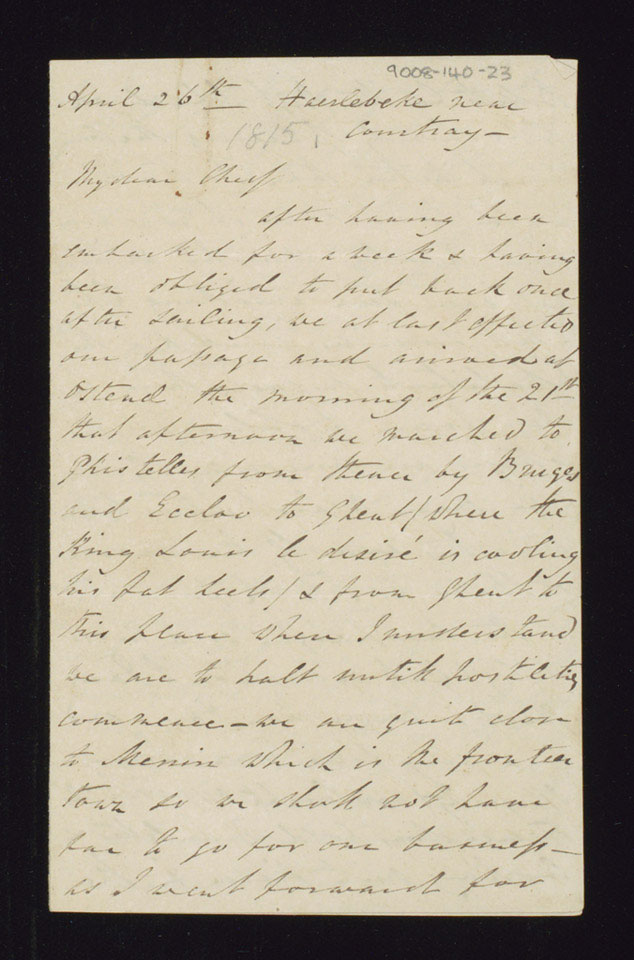 9008-140-23
April 26th Haerlebeke near
1815, Courtray -
My dear Cheif
after having been
embarked for a week & having
been obliged to put back once
after sailing, we at last effected
our passage and arrived at
Ostend the morning of the 21st
that afternoon we marched to
Ghistelles from thence by Bruges
and Eccloo to Ghent (where the
King Louis le desiré is cooling
his fat heels) & from Ghent to
this place where I understand
we are to halt until hostilities
commence - we are quite close
to Menin which is the frontier
town so we shall not have
far to go for our business -
as I went forward for